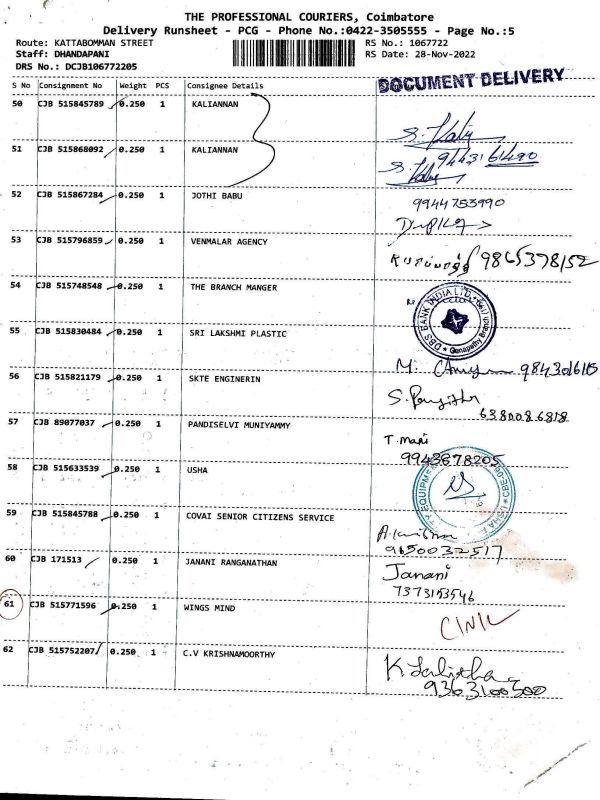 THE PROFESSIONAL COURIERS, Coimbatore
Delivery Runsheet - PCG - Phone No.:0422-3505555 - Page No.:5
Route: KATTABOMMAN STREET RS No.: 1067722
Staff: DHANDAPANI RS Date: 28-Nov-2022
DRS No.: DCJB106772205
S No Consignment No Weight PCS Consignee Details DOCUMENT DELIVERY
50 CJB 515845789 0.250 1 KALIANNAN
51 CJB 515868092 1 0.250 1 KALIANNAN
9443161490
52 CJB 515867284 0.250 1 JOTHI BABU 9944753990
53 CJB 515796859 0.250 1 VENMALAR AGENCY
9865378152
54 CJB 515748548 0.250 1 THE BRANCH MANGER
DBS BANK INDIA LTD
Ganapathy Branch
55 CJB 515830484 0.250 1 SRI LAKSHMI PLASTIC
9843016115
56 CJB 515821179 0.250 1 SKTE ENGINERIN
6380086818
57 CJB 89077037 0.250 1 PANDISELVI MUNIYAMMY
T. mani
9943878205
58 CJB 515633539 0.250 1 USHA
59 CJB 515845788 0.250 1 COVAI SENIOR CITIZENS SERVICE
9150032517
60 CJB 171513 0.250 1 JANANI RANGANATHAN
Janani
7373153546
61 CJB 515771596 0.250 1 WINGS MIND
62 CJB 515752207 0.250 1 C.V KRISHNAMOORTHY
9363100300